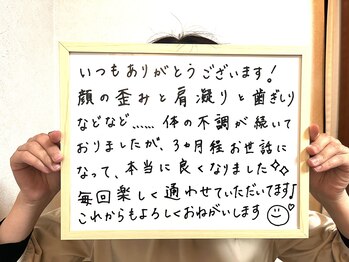 いつもありがとうございます!
顔の歪みと肩凝りと歯ぎしり
などなど……体の不調が続いて
おりましたが、3ヵ月程お世話に
なって、本当に良くなりました✧✧
毎回楽しく通わせていただいてます♪
これからもよろしくおねがいします☺♡